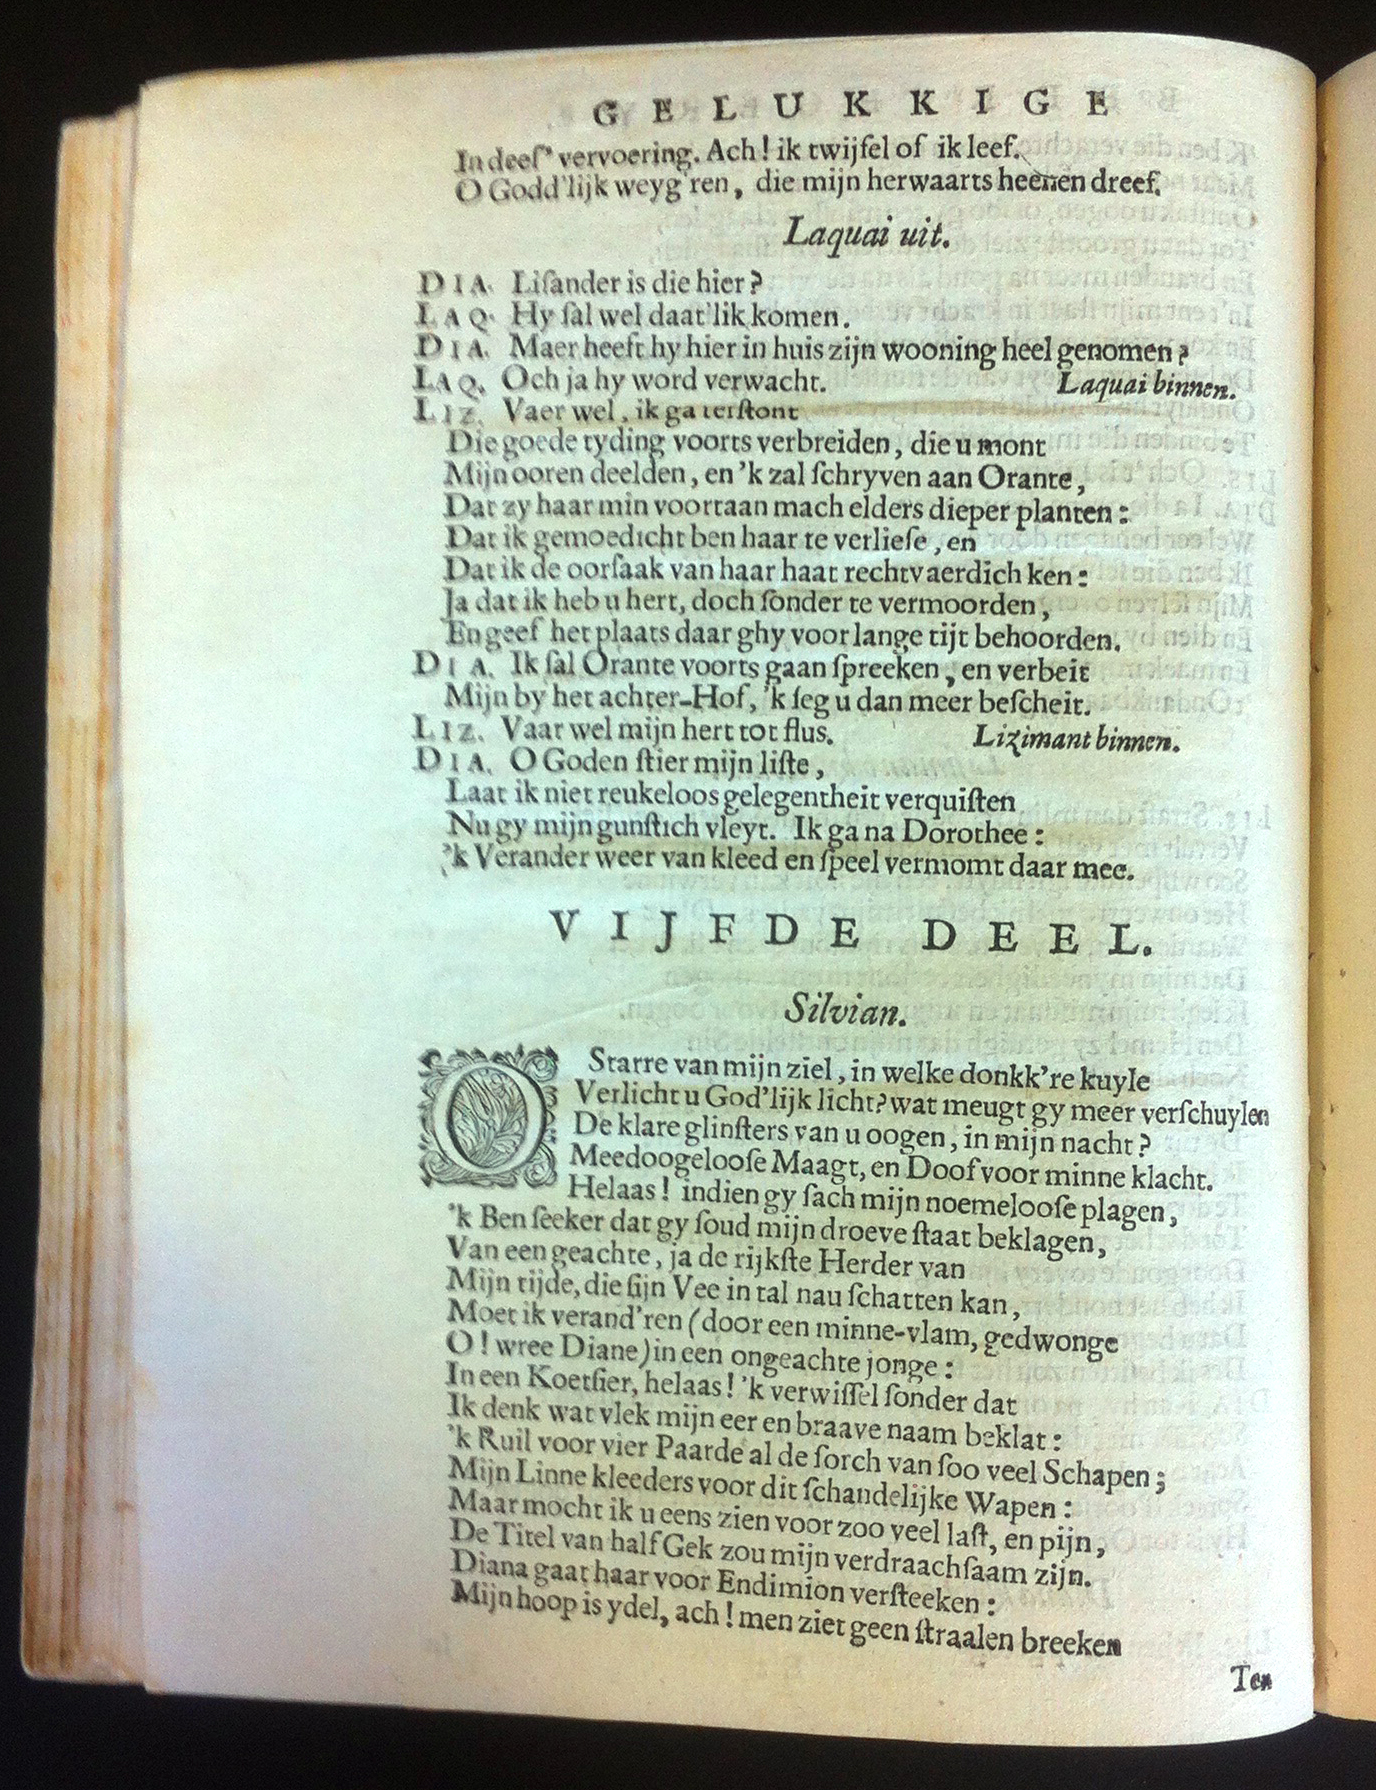 GELUKKIGE
In deeſ' vervoering. Ach! ik twijfel of ik leef.
O Godd'lijk weyg'ren, die mijn herwaarts heenen dreef.
Laquai uit.
DIA. Liſander is die hier?
LAQ. Hy ſal wel daat'lik komen.
DIA. Maer heeft hy hier in huis zijn wooning heel genomen?
LAQ. Och ja hy word verwacht. Laquai binnen.
LIZ. Vaer wel, ik ga terſtont
Die goede tyding voorts verbreiden, die u mont
Mijn ooren deelden, en 'k zal ſchryven aan Orante,
Dat zy haar min voortaan mach elders dieper planten:
Dat ik gemoedicht ben haar te verlieſe, en
Dat ik de oorſaak van haar haat rechtvaerdich ken:
Ja dat ik heb u hert, doch ſonder te vermoorden,
En geef het plaats daar ghy voor lange tijt behoorden.
DIA. Ik ſal Orante voorts gaan ſpreeken, en verbeit
Mijn by het achter-Hof, 'k ſeg u dan meer beſcheit.
LIZ. Vaar wel mijn hert tot flus. Lizimant binnen.
DIA. O Goden ſtier mijn liſte,
Laat ik niet reukeloos gelegentheit verquiſten
Nu gy mijn gunſtich vleyt. Ik ga na Dorothee:
'k Verander weer van kleed en ſpeel vermomt daar mee.
VIJFDE DEEL.
Silvian.
O Starre van mijn ziel, in welke donkk're kuyle
Verlicht u God'lijk licht? wat meugt gy meer verſchuylen
De klare glinſters van u oogen, in mijn nacht?
Meedoogelooſe Maagt, en Doof voor minne klacht.
Helaas! indien gy ſach mijn noemelooſe plagen,
'k Ben ſeeker dat gy ſoud mijn droeve ſtaat beklagen,
Van een geachte, ja de rijkſte Herder van
Mijn tijde, die ſijn Vee in tal nau ſchatten kan,
Moet ik verand'ren (door een minne-vlam, gedwonge
O! wree Diane) in een ongeachte jonge:
In een Koetſier, helaas! 'k verwiſſel ſonder dat
Ik denk wat vlek mijn eer en braave naam beklat:
'k Ruil voor vier Paarde al de ſorch van ſoo veel Schapen;
Mijn Linne kleeders voor dit ſchandelijke Wapen:
Maar mocht ik u eens zien voor zoo veel laſt, en pijn,
De Titel van half Gek zou mijn verdraachſaam zijn.
Diana gaat haar voor Endimion verſteeken:
Mijn hoop is ydel, ach! men ziet geen ſtraalen breeken
Ten